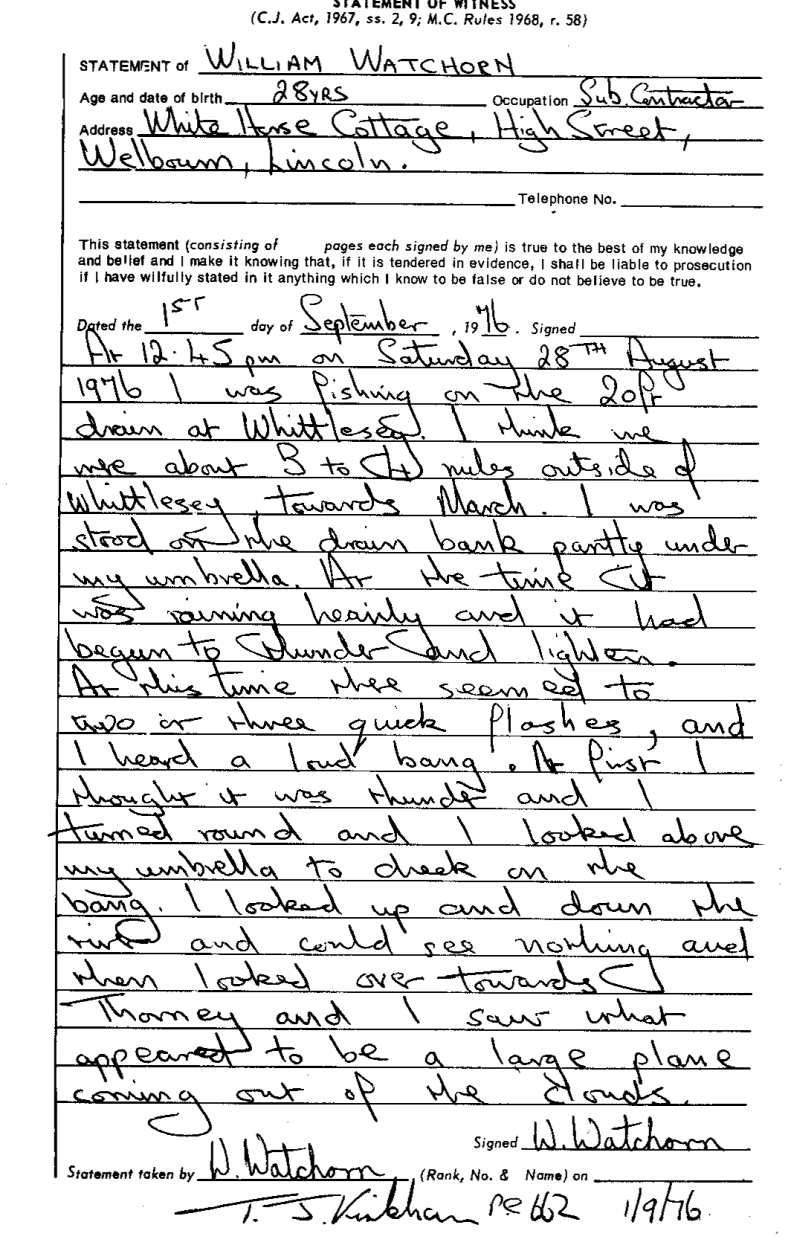 STATEMENT OF WITNESS
(C.J. Act, 1967, ss. 2, 9; M.C. Rules 1968, r. 58)
STATEMENT of WILLIAM WATCHORN
Age and date of birth 28 YRS Occupation Sub. Contractor
Address White Horse Cottage, High Street,
Welbourn, Lincoln.
Telephone No.
This statement (consisting of pages each signed by me) is true to the best of my knowledge
and belief and I make it knowing that, if it is tendered in evidence, I shall be liable to prosecution
if I have wilfully stated in it anything which I know to be false or do not believe to be true.
Dated the 1ST day of September, 1976. Signed
At 12.45 pm on Saturday 28TH August
1976 I was fishing on the 20ft
drain at Whittlesey. I think we
were about 3 to 4 miles outside of
Whittlesey, towards March. I was
stood on the drain bank partly under
my umbrella. At the time it
was raining heavily and it had
begun to thunder and lighten.
At this time there seemed to
two or three quick flashes, and
I heard a loud bang. At first I
thought it was thunder and I
turned round and I looked above
my umbrella to check on the
bang. I looked up and down the
river and could see nothing and
then looked over towards
Thorney and I saw what
appeared to be a large plane
coming out of the clouds.
Signed W. Watchorn
Statement taken by W. Watchorn (Rank, No. & Name) on
T. J. Kinkham PC 662 1/9/76